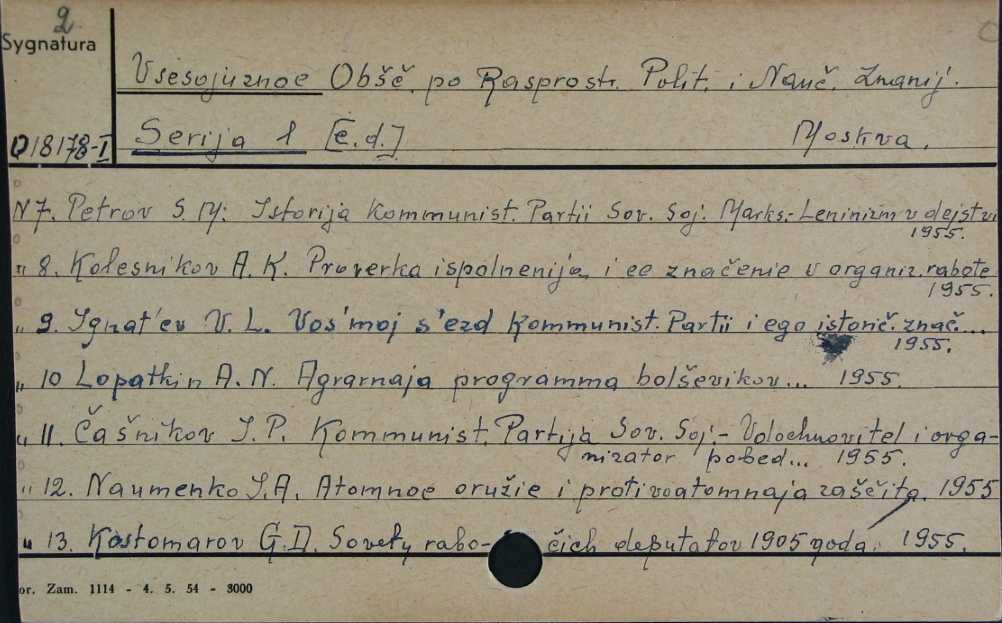 2
Sygnatura
Vsesojuznoe Obšč. po Rasprostr. Polit. i Nauč. Znanij.
D18178-I Serija 1 [c.d.] Moskva.
N 7. Petrov S. M: Istorija Kommunist. Partii Sov. Soj. Marks.-Leninizm v dejstvi
1955.
" 8. Kolesnikov A. K. Proverka ispolnenija i ee značenie v organiz. rabote
1955.
" 9. Ignat'ev V. L. Vos'moj s'ezd Kommunist. Partii i ego istorič. znač...
1955.
" 10 Lopatkin A. N. Agrarnaja programma bolševikov... 1955.
" 11. Čašnikov I. P. Kommunist. Partija Sov. Soj.- Vdochnovitel i orga-
nizator pobed... 1955.
" 12. Naumenko I. A. Atomnoe oružie i protivoatomnaja zaščita. 1955
" 13. Kostomarov G. D. Sovety rabo-čich deputatov 1905 goda. 1955.
or. Zam. 1114 - 4. 5. 54 - 3000